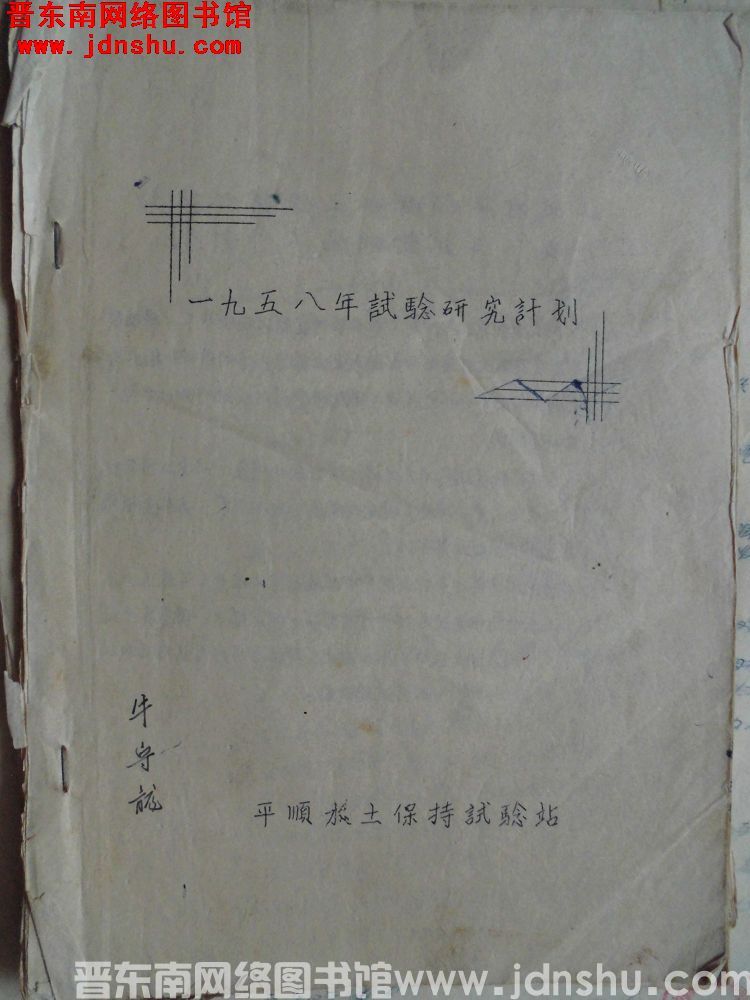 晋东南网络图书馆
www.jdnshu.com
一九五八年試験研究計划
牛守龍
平順水土保持試験站
晋东南网络图书馆www.jdnshu.com